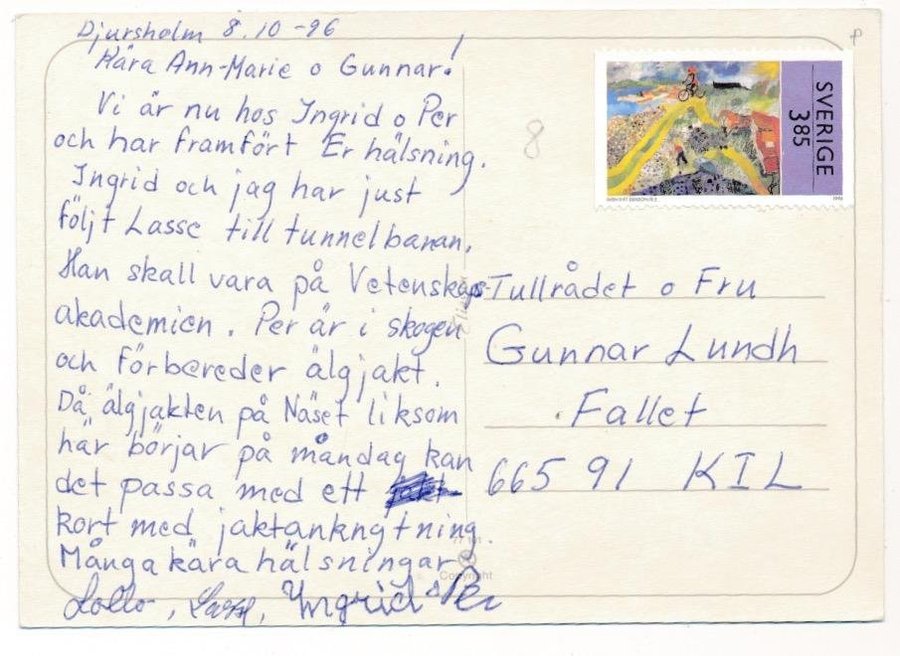 Djursholm 8.10 -96
Kära Ann-Marie o Gunnar!
Vi är nu hos Ingrid o Per
och har framfört Er hälsning.
Ingrid och jag har just
följt Lasse till tunnelbanan.
Han skall vara på Vetenskaps-
akademien. Per är i skogen
och förbereder älgjakt.
Då älgjakten på Näset liksom
här börjar på måndag kan
det passa med ett
kort med jaktanknytning.
Många kära hälsningar
Lollo, Lasse, Ingrid o Per
8
P
SVERIGE
3.85
Tullrådet o Fru
Gunnar Lundh
Fallet
665 91 KIL
Copyright